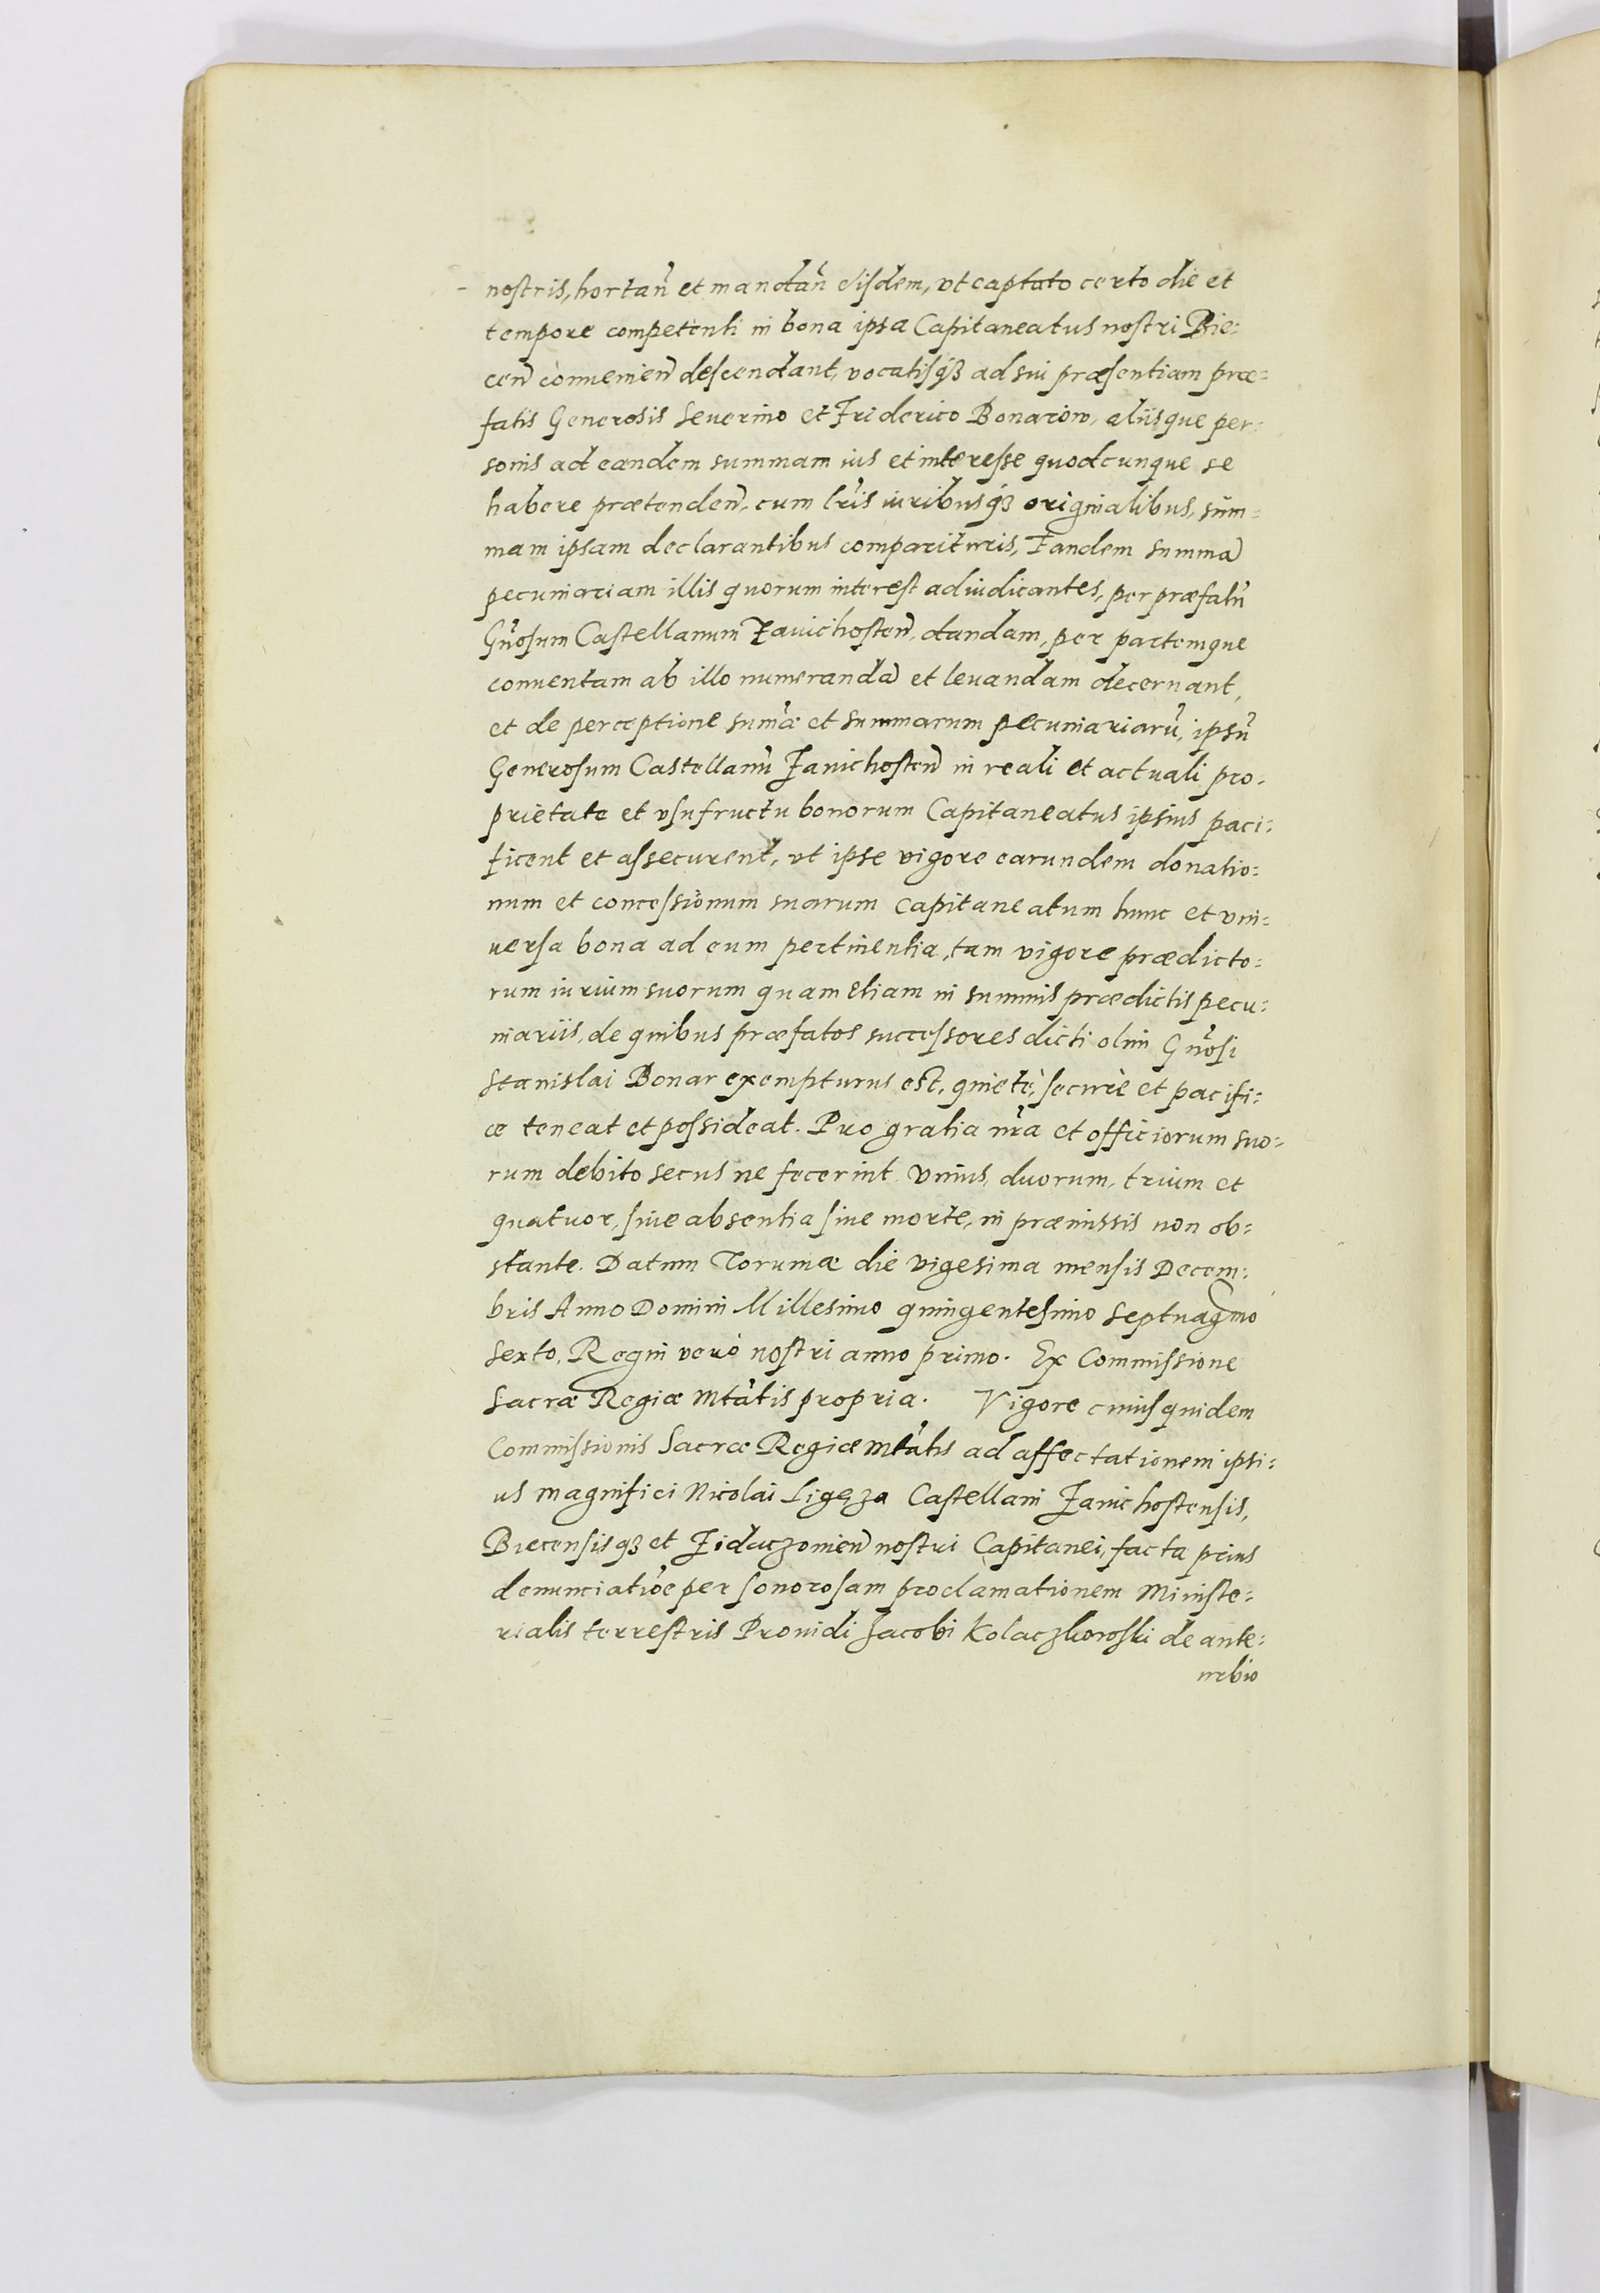 nostris, hortan̄ et mandan̄ eisdem, vt captato certo die et
tempore competenti in bona ipsa Capitaneatus nostri Bie:
cen̄ conuenien̄ descendant, vocatisq́ȝ ad sui præsentiam præ=
fatis Generosis Seuerino et Friderico Bonarow, aliisque per:
sonis ad eandem summam ius et interesse quodcunque se
habere prætenden̄, cum lr̄is iuribusq́ȝ originalibus, sum=
mam ipsam declarantibus comparituris, Tandem summā
pecuniariam illis quorum interest adiudicantes, per præfatū
Gn̄osum Castellanum Zauichosten̄, dandam, per partemque
conuentam ab illo numerandā et leuandam decernant,
et de perceptione sum̄æ et summarum pecuniariarū, ipsū
Generosum Castellanū Zauichosten̄ in reali et actuali pro:
prietate et vsufructu bonorum Capitaneatus ipsius paci:
ficent et assecurent, vt ipse vigore earundem donatio:
num et concessionum suarum capitaneatum hunc et vni:
uersa bona ad eum pertinentia, tam vigore prædicto:
rum iurium suorum quam etiam in summis prædictis pecu:
niariis, de quibus præfatos successores dicti olim Gn̄osi
Stanislai Bonar exempturus est, quietè, securè et pacifi:
cæ teneat et possideat. Pro gratia nr̄a et officiorum suo:
rum debito secus ne fecerint. Vnius, duorum, trium et
quatuor, siue absentia siue morte, in præmissis non ob:
stante. Datum Toruniæ die vigesima mensis Decem:
bris Anno Domini Millesimo quingentesimo septuagmo
sexto, Regni verò nostri anno primo. Ex Commissione
Sacræ Regiæ Mtātis propria. Vigore cuiusquidem
Commissionis Sacræ Regiæ Mtātis ad affectationem ipsi:
us magnifici Nicolai Ligęza Castellani Zauichostensis,
Biecensisqȝ et Zidaczouien̄ nostri Capitanei, facta prius
denunciatiōe per sonorosam proclamationem Ministe:
rialis terrestris Prouidi Jacobi Kolaczkowski de ante:
urbio